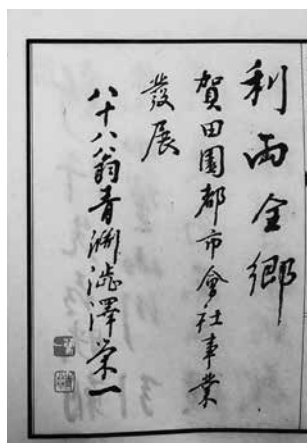 利両全郷
賀田園都市會社事業
發展
八十八翁青淵澁澤栄一